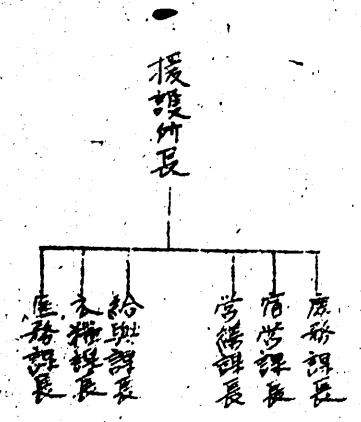 援護所長
庶務課長
宿営課長
営繕課長
給与課長
衣糧課長
医務課長